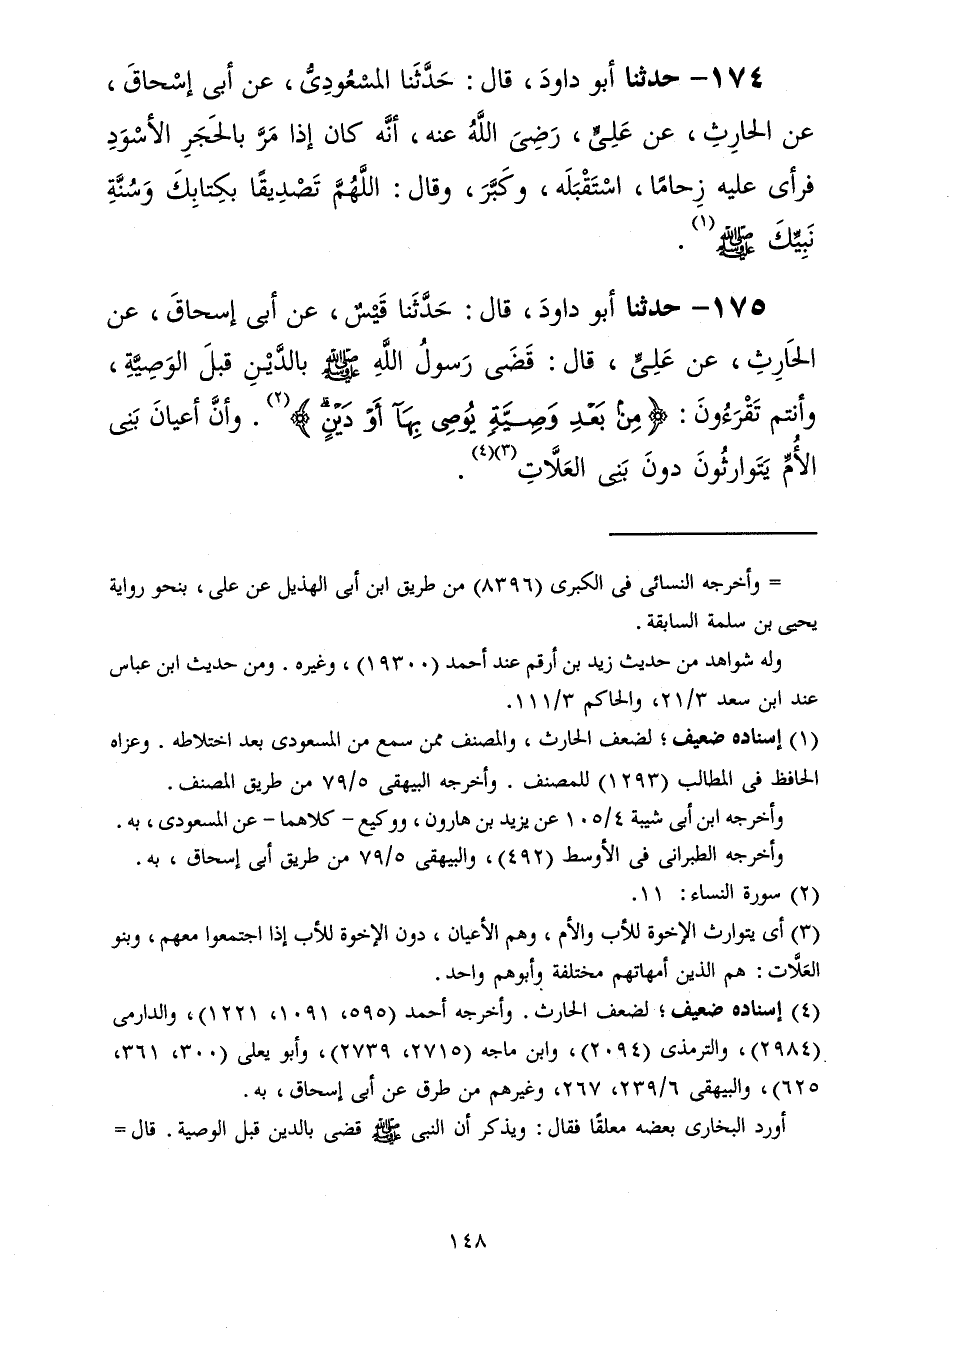 ١٧٤- حدثنا أبو داودَ ، قال : حَدَّثَنا المسْعُودِىُّ ، عن أبى إسْحاقَ ،
عن الحارِثِ ، عن عَلِىٍّ ، رَضِىَ اللَّهُ عنه ، أنَّه كان إذا مَرَّ بالحَجَرِ الأسْوَدِ
فرأى عليه زِحامًا ، اسْتَقْبَلَه ، وكَبَّرَ ، وقال : اللَّهُمَّ تَصْدِيقًا بكِتابِكَ وَسُنَّةِ
نَبِيِّكَ ﷺ(١) .
١٧٥- حدثنا أبو داودَ ، قال : حَدَّثَنا قَيْسٌ ، عن أبى إسحاقَ ، عن
الحَارِثِ ، عن عَلِىٍّ ، قال : قَضَى رَسولُ اللَّهِ ﷺ بالدَّيْنِ قبلَ الوَصِيَّةِ ،
وأنتم تَقْرَءُونَ : ﴿مِنۢ بَعْدِ وَصِيَّةٍ يُوصِى بِهَآ أَوْ دَيْنٍۗ﴾(٢) . وأنَّ أعيانَ بَنِى
الأُمِّ يَتَوارثُونَ دونَ بَنِى العَلَّاتِ(٣)(٤) .
= وأخرجه النسائى فى الكبرى (٨٣٩٦) من طريق ابن أبى الهذيل عن على ، بنحو رواية
يحيى بن سلمة السابقة .
وله شواهد من حديث زيد بن أرقم عند أحمد (١٩٣٠٠) ، وغيره . ومن حديث ابن عباس
عند ابن سعد ٢١/٣، والحاكم ١١١/٣.
(١) إسناده ضعيف ؛ لضعف الحارث ، والمصنف ممن سمع من المسعودى بعد اختلاطه . وعزاه
الحافظ فى المطالب (١٢٩٣) للمصنف . وأخرجه البيهقى ٧٩/٥ من طريق المصنف .
وأخرجه ابن أبى شيبة ١٠٥/٤ عن يزيد بن هارون ، ووكيع - كلاهما - عن المسعودى ، به .
وأخرجه الطبرانى فى الأوسط (٤٩٢) ، والبيهقى ٧٩/٥ من طريق أبى إسحاق ، به .
(٢) سورة النساء : ١١.
(٣) أى يتوارث الإخوة للأب والأم ، وهم الأعيان ، دون الإخوة للأب إذا اجتمعوا معهم ، وبنو
العَلَّات : هم الذين أمهاتهم مختلفة وأبوهم واحد .
(٤) إسناده ضعيف ؛ لضعف الحارث . وأخرجه أحمد (٥٩٥، ١٠٩١، ١٢٢١) ، والدارمى
(٢٩٨٤) ، والترمذى (٢٠٩٤) ، وابن ماجه (٢٧١٥، ٢٧٣٩) ، وأبو يعلى (٣٠٠، ٣٦١،
٦٢٥) ، والبيهقى ٢٣٩/٦، ٢٦٧، وغيرهم من طرق عن أبى إسحاق ، به .
أورد البخارى بعضه معلقًا فقال : ويذكر أن النبى ﷺ قضى بالدين قبل الوصية . قال =
١٤٨